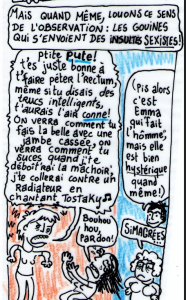 MAIS QUAND MÊME, LOUONS CE SENS
DE L'OBSERVATION: LES GOUINES
QUI S'ENVOIENT DES INSULTES SEXISTES!
Ptite pute!
t'es juste bonne à
t'faire péter l'rectum,
même si tu disais des
trucs intelligents,
t'aurais l'air conne!
On verra comment tu
fais la belle avec une
jambe cassée, on
verra comment tu
suces quand j'te
déboitrai la machoir,
j'te collerai contre un
radiateur en
chantant Tostaky♫
(Pis alors
c'est Emma
qui fait
l'homme,
mais elle
est bien
hystérique
quand
même!)
Boohou
hou,
PARDON!
SIMAGRÉES